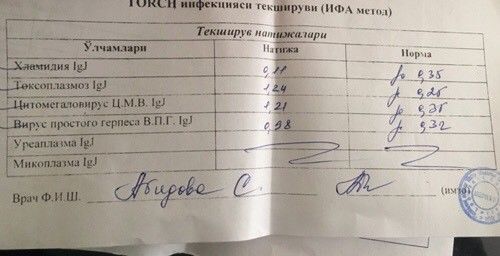 TORCH инфекцияси текшируви (ИФА метод)
Текширув натижалари
Ўлчамлари Натижа Норма
Хламидия IgJ 0,11 до 0,35
Токсоплазмоз IgJ 1,24 0,25
Цитомегаловирус Ц.М.В. IgJ 1,21 0,35
Вирус простого герпеса В.П.Г. IgJ 0,98 0,32
Уреаплазма IgJ
Микоплазма IgJ
Врач Ф.И.Ш. Абидова С. (имзо)